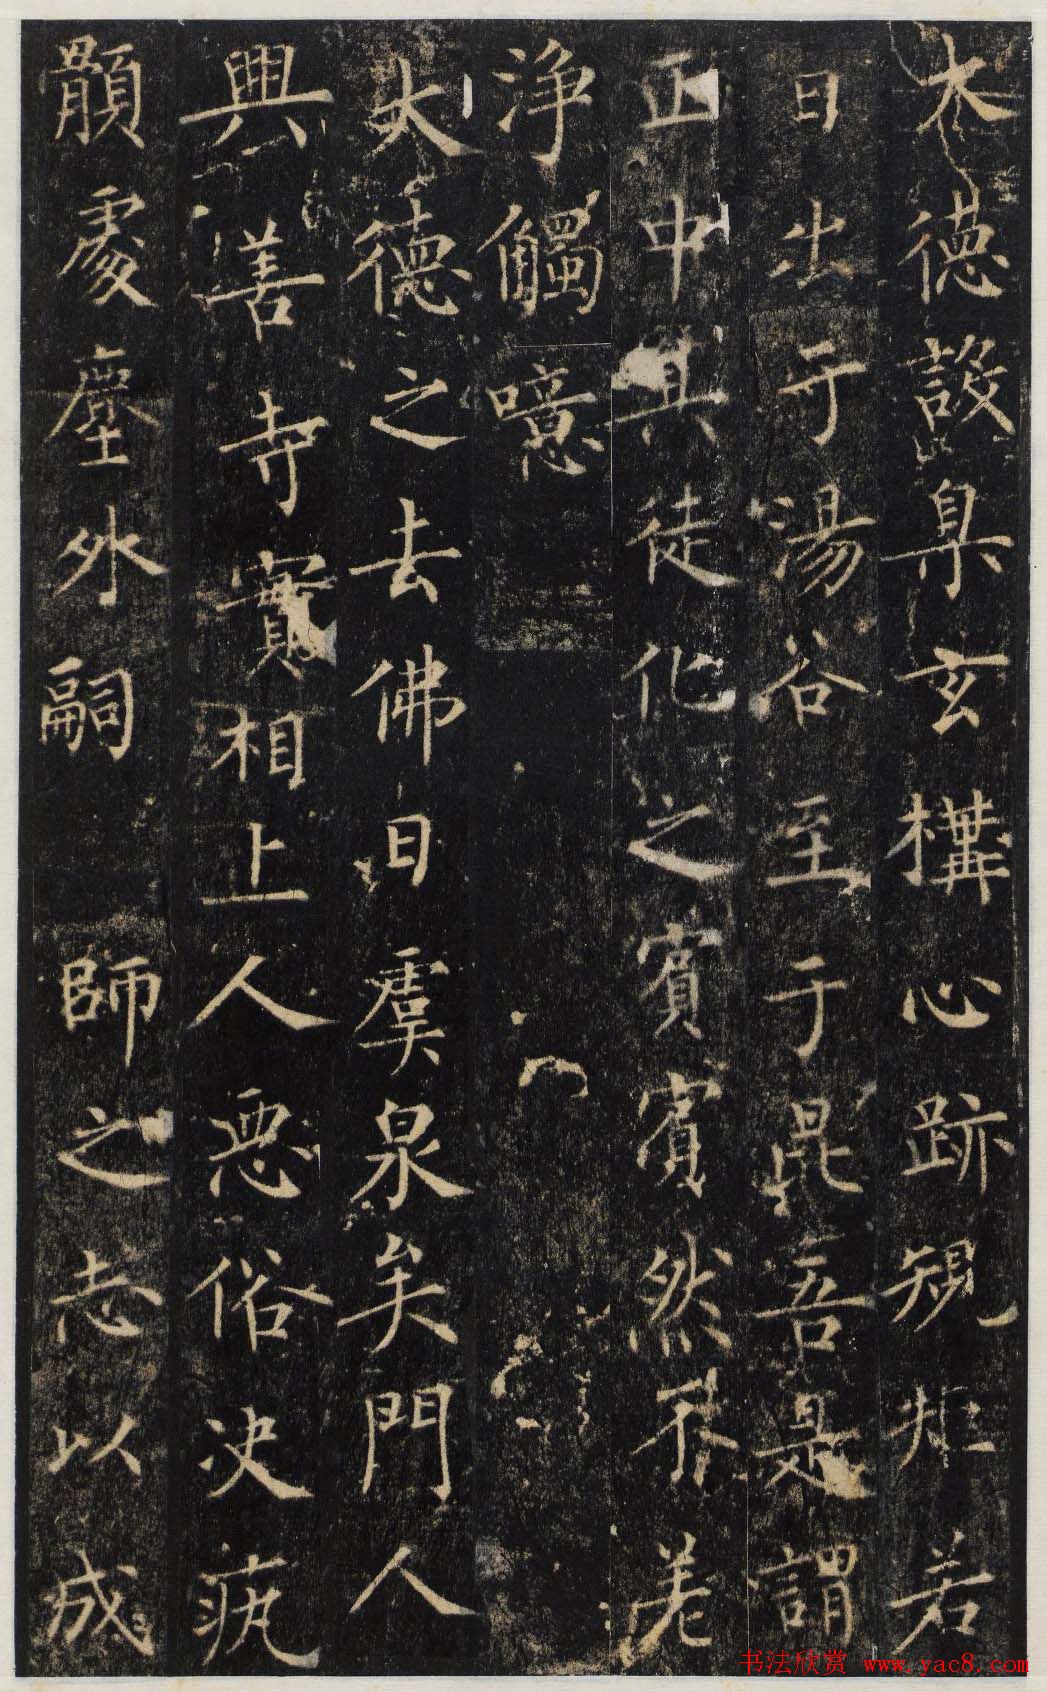 大德設臬玄構心跡規矩若
日出于湯谷至于昆吾是謂
正中其徒化之賓賓然不差
淨觸噫
大德之去佛日虞泉矣門人
興善寺實相上人惡俗決疣
顝處塵外嗣 師之志以成
书法欣赏 www.yac8.com